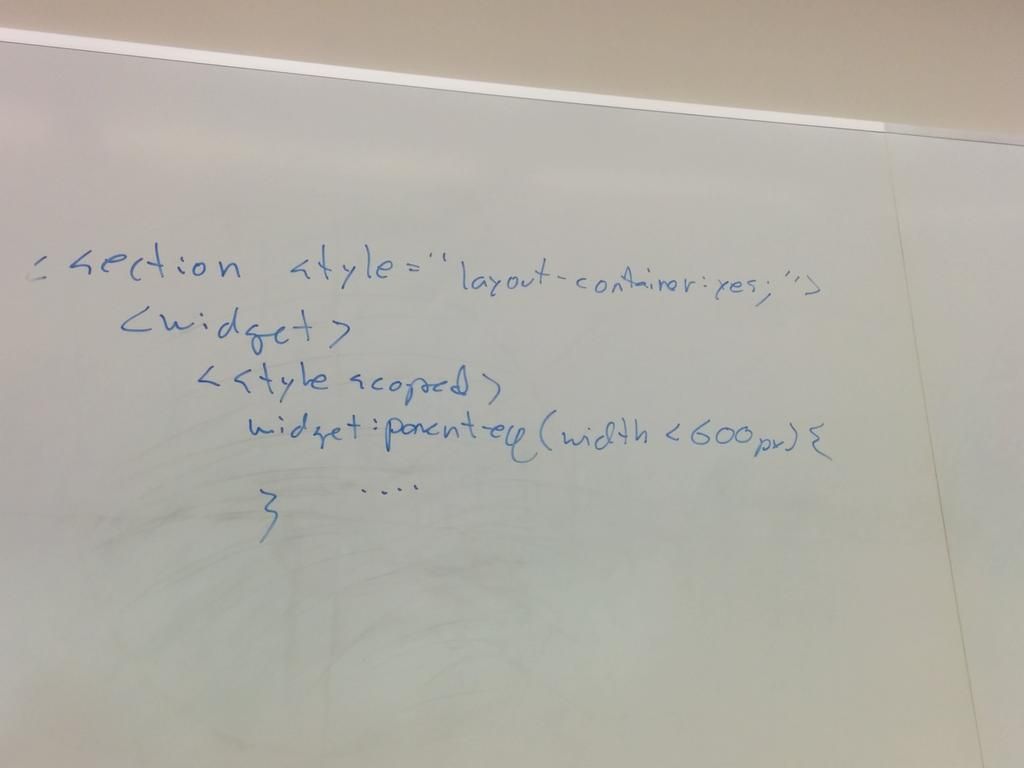 <section style="layout-container:yes;">
<widget>
<style scoped>
widget:parent-eq(width < 600px){
....
}